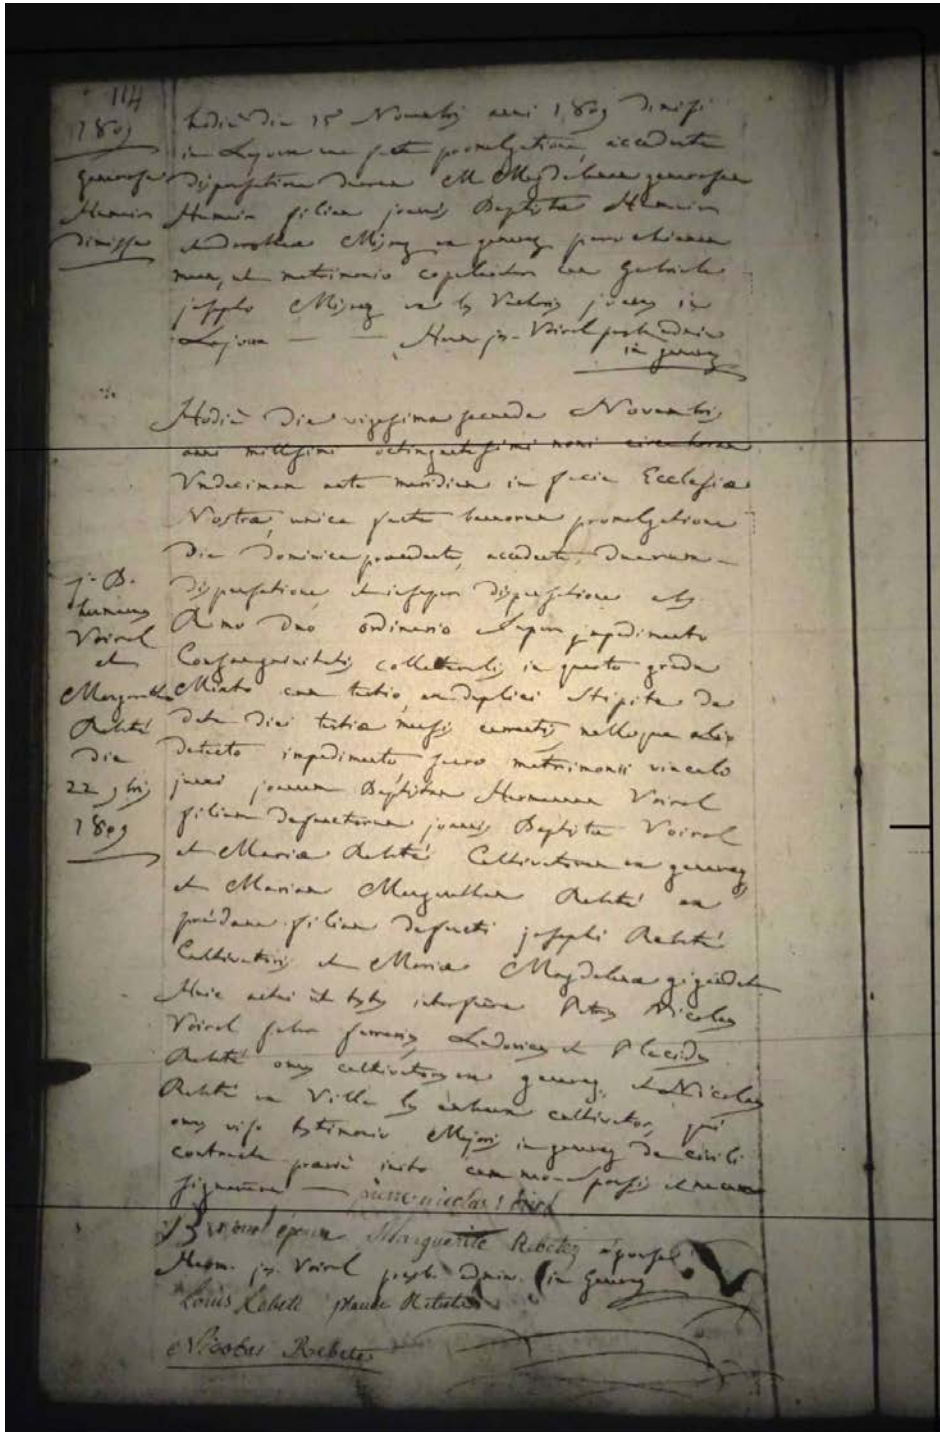 114
1809
generosa
Humair
dimissa
hodie die 15 Novembris anni 1809 dimisi
in Lajoux una facta promulgatione, accedente
dispensatione duarum M Magdalenam generosam
Humair filiam joannis Baptistae Humair
et Dorothea Misrez ex genevez parochianam
meam, ut matrimonio copuletur cum Gabriele
josepho Misrez ex les Vacheries in
Lajoux — — Herm jos. Voirol presb. admin
in genevez
Hodie Die vigesima secunda Novembris
anni millesimi octingentesimi noni circa horam
Undecimam ante meridiem in facie Ecclesiae
Nostrae, unica facta bannorum promulgatione
Die Dominica praecedente, accedente, Duarum
dispensatione et insuper dispensatione ab
Rmo Dno ordinario super impedimento
Consanguinitatis collateralis in quarto gradu
Mixto cum tertio, ex duplici Stipite de
data diei tertiae mensis currentis nulloque alio
detecto impedimento sacro matrimonii vinculo
junxi joannem Baptistam Hermannum Voirol
filium defunctorum joannis Baptistae Voirol
et Mariae Rebeté Cultivatorum ex genevez
et Mariam Margaritham Rebeté ex
filiam defuncti josephi Rebeté
Cultivatoris et Mariae Magdalenae gigandet
Huic actui ut testes interfuere Petrus Nicolas
Voirol faber ferrarius, Ludovicus et Placidus
Rebeté omnes cultivatores ex genevez, et Nicolas
Rebeté ex Villa les enhum cultivator, qui
omnes viso testimonio Majoris in genevez de civili
contractu praevie inito cum sponsis et mecum
signarunt — pierre nicolas Voirol
j.-B.
hermanus
Voirol
et
Margaretha
Rebeté
Die
22 9bris
1809
J B voirol époux Marguerite Rebetez épouse
Herm. jos. Voirol presb. admin. in Genevez
Louis Rebeté
Nicolas Rebetez